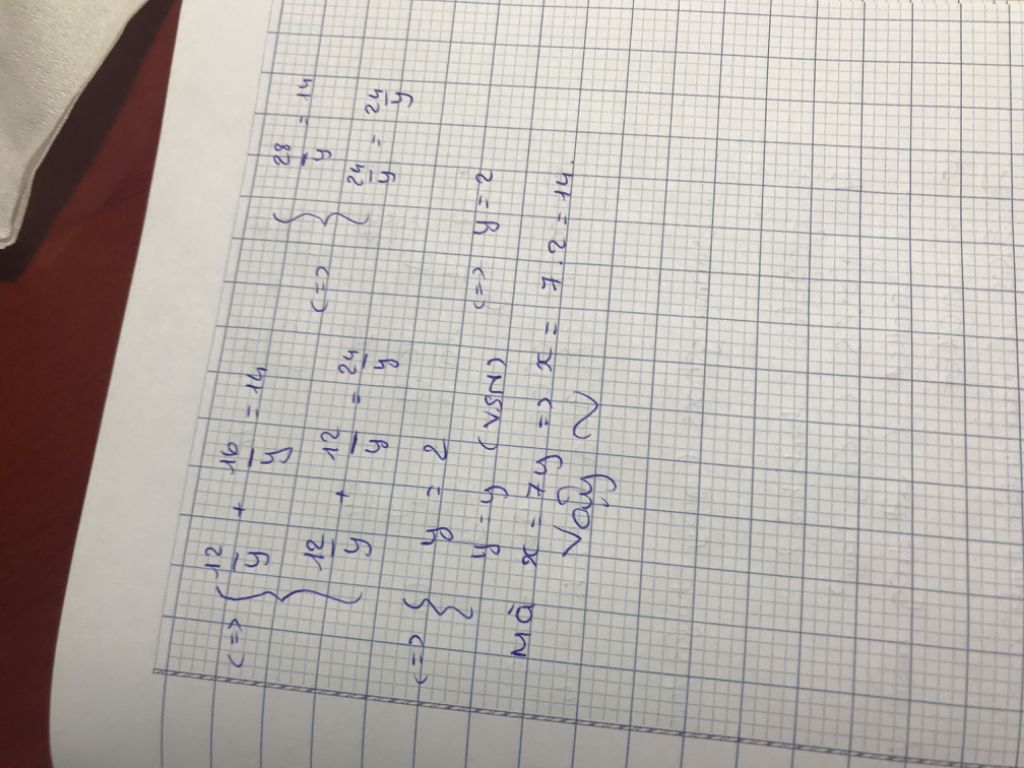 <=> { 12/y + 16/y = 14 <=> { 28/y = 14
12/y + 12/y = 24/y 24/y = 24/y
<=> { y = 2
y = y (VSN) <=> y = 2
Mà x = 7y => x = 7.2 = 14.
Vậy ~